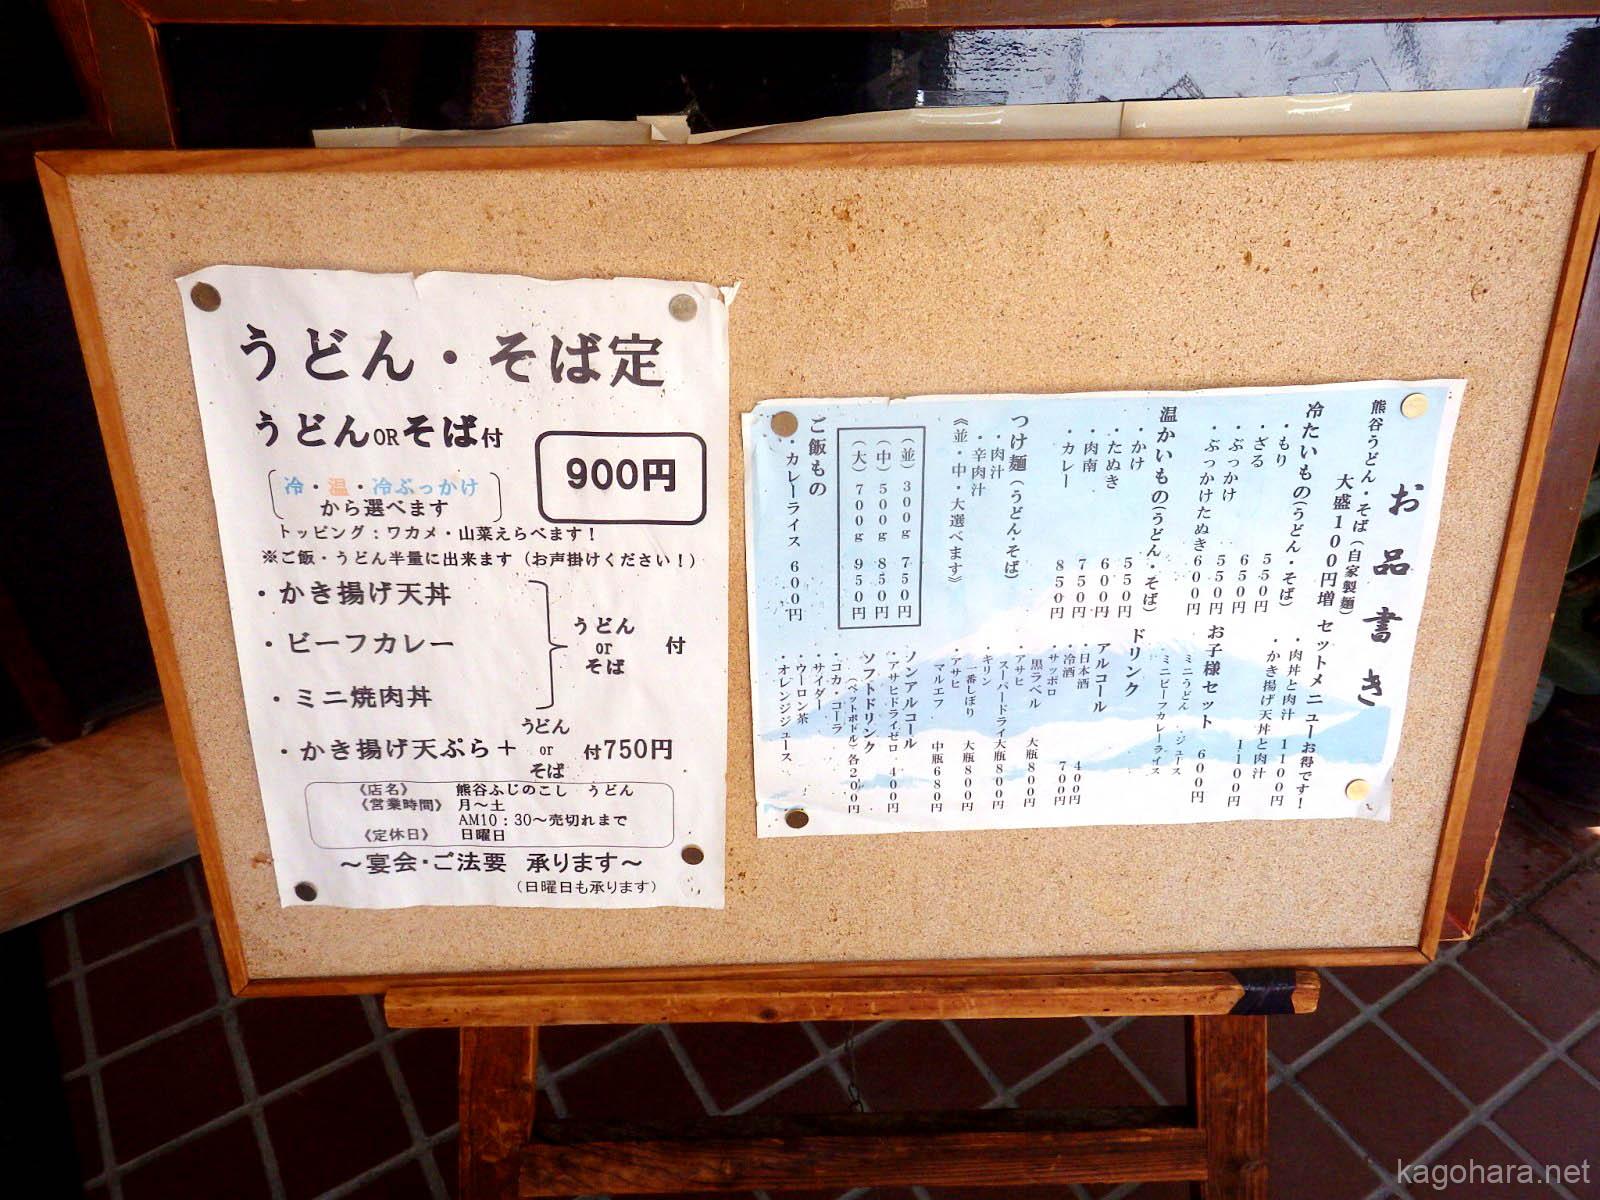 うどん・そば定
うどんORそば付
900円
冷・温・冷ぶっかけ
から選べます
トッピング：ワカメ・山菜えらべます！
※ご飯・うどん半量に出来ます（お声掛けください！）
・かき揚げ天丼
・ビーフカレー
・ミニ焼肉丼
うどん
or
そば
付
・かき揚げ天ぷら＋
うどん
or
そば
付750円
《店名》 熊谷ふじのこし うどん
《営業時間》 月～土
AM10：30～売切れまで
《定休日》 日曜日
～宴会・ご法要 承ります～
（日曜日も承ります）
お品書き
熊谷うどん・そば（自家製麺）
大盛１００円増
冷たいもの（うどん・そば）
・もり ５５０円
・ざる ６５０円
・ぶっかけ ５５０円
・ぶっかけたぬき ６００円
温かいもの（うどん・そば）
・かけ ５５０円
・たぬき ６００円
・肉南 ７５０円
・カレー ８５０円
つけ麺（うどん・そば）
・肉汁
・辛肉汁
《並・中・大選べます》
（並）３００ｇ ７５０円
（中）５００ｇ ８５０円
（大）７００ｇ ９５０円
ご飯もの
・カレーライス ６００円
セットメニューお得です！
・肉丼と肉汁 １１００円
・かき揚げ天丼と肉汁 １１００円
お子様セット ６００円
ミニうどん ジュース
・ミニビーフカレーライス
ドリンク
アルコール
・日本酒 ４００円
・冷酒 ７００円
・サッポロ
黒ラベル 大瓶８００円
・アサヒ
スーパードライ 大瓶８００円
・キリン
一番しぼり 大瓶８００円
・アサヒ
マルエフ 中瓶６８０円
ノンアルコール
・アサヒドライゼロ ４００円
ソフトドリンク
（ペットボトル）各２００円
・コカ・コーラ
・サイダー
・ウーロン茶
・オレンジジュース
kagohara.net